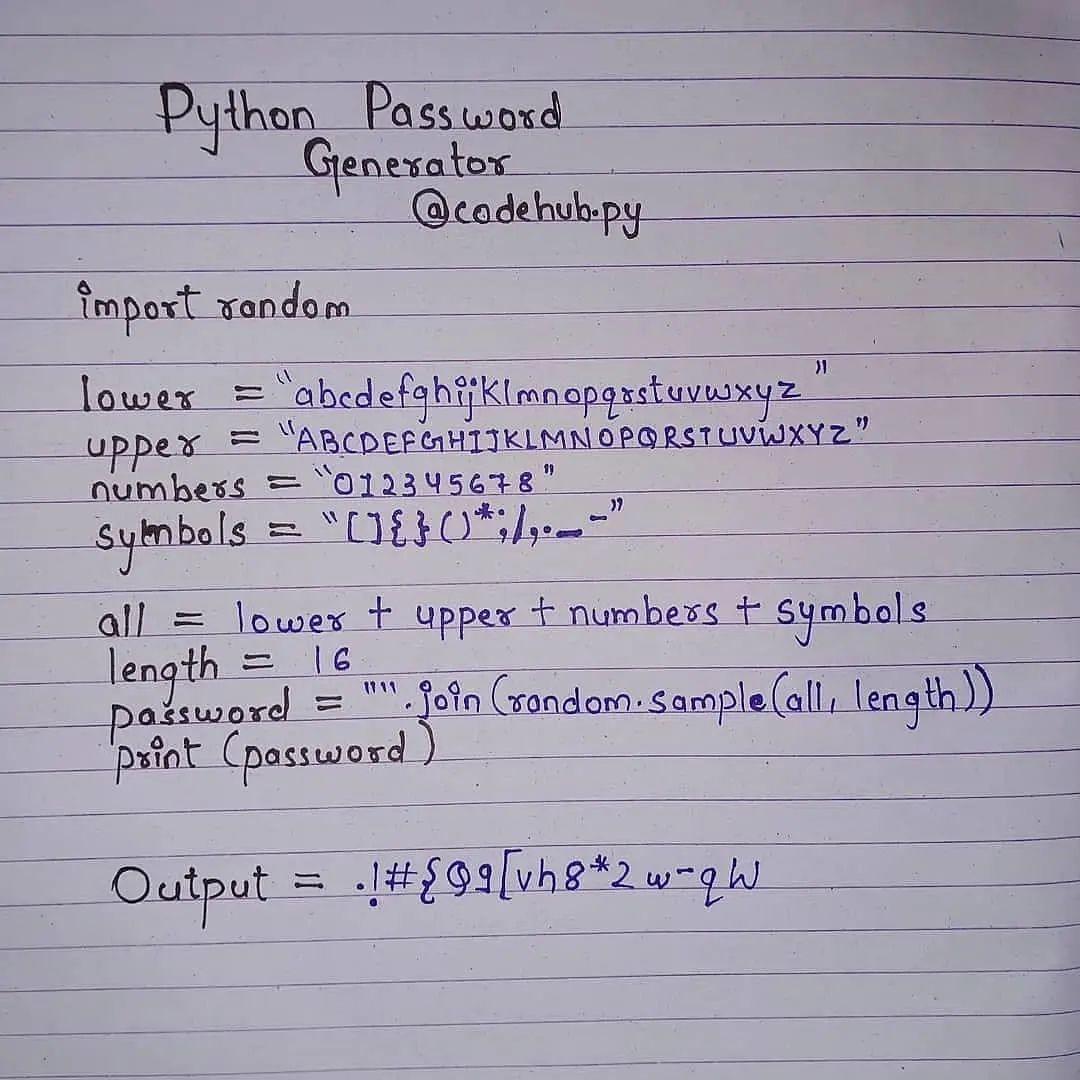 Python Password
Generator
@codehub.py
import random
lower = "abcdefghijklmnopqrstuvwxyz"
upper = "ABCDEFGHIJKLMNOPQRSTUVWXYZ"
numbers = "012345678"
symbols = "[]{}()*;/,._-"
all = lower + upper + numbers + symbols
length = 16
password = "".join(random.sample(all, length))
print (password)
Output = .!#{Q9[vh8*2w-qW